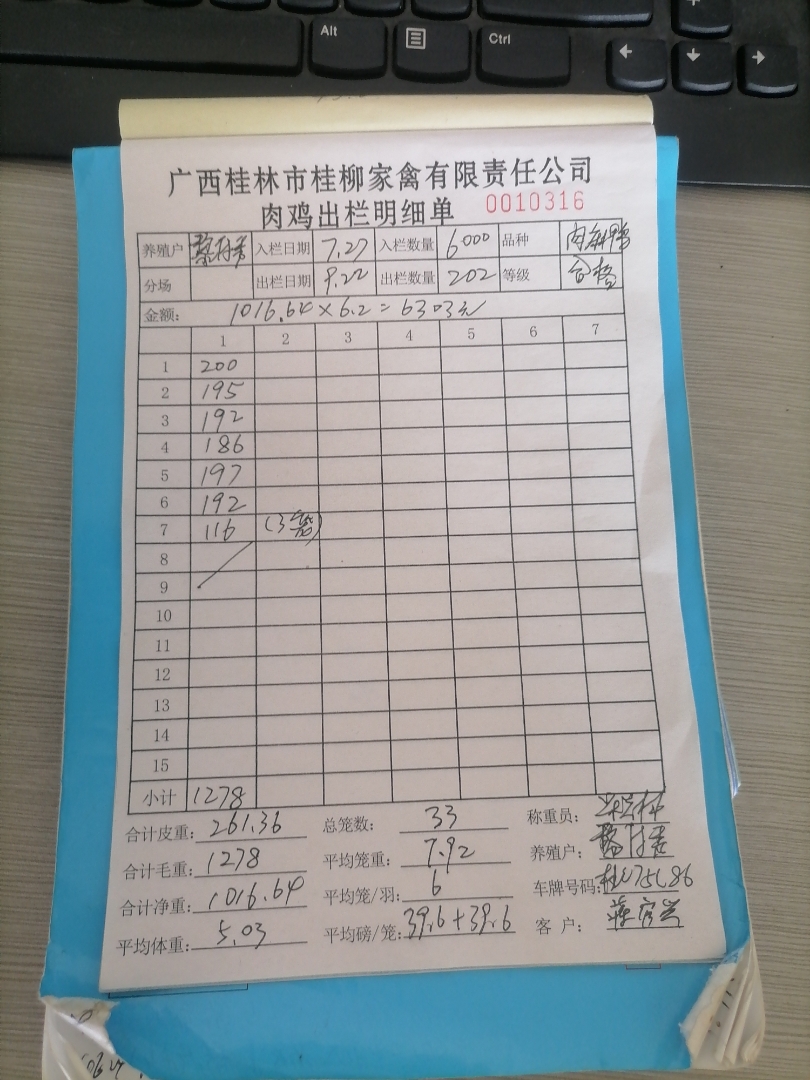 Alt
Ctrl
广西桂林市桂柳家禽有限责任公司
肉鸡出栏明细单 0010316
养殖户 入栏日期 7.27 入栏数量 6000 品种 肉麻鸭
分场 出栏日期 9.22 出栏数量 202 等级 合格
金额: 1016.64×6.2=6303元
1 2 3 4 5 6 7
1 200
2 195
3 192
4 186
5 197
6 192
7 116 (3笼)
8
9
10
11
12
13
14
15
小计 1278
合计皮重: 261.36 总笼数: 33 称重员:
合计毛重: 1278 平均笼重: 7.92 养殖户:
合计净重: 1016.64 平均笼/羽: 6 车牌号码:
平均体重: 5.03 平均磅/笼: 39.6+39.6 客户: